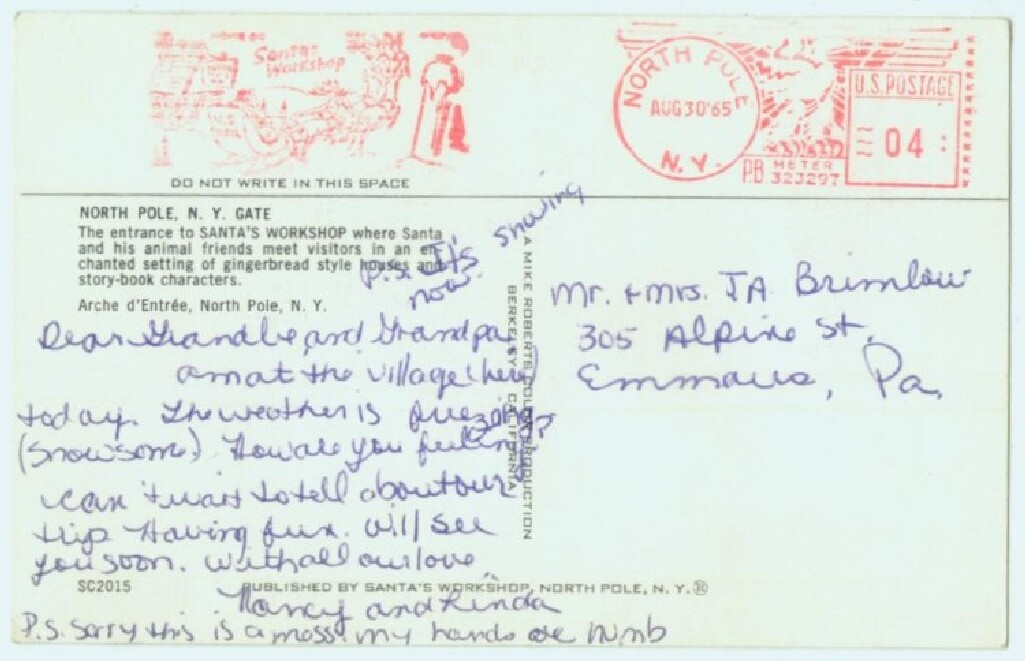 Santa's
Workshop
NORTH POLE
AUG 30 '65
N. Y.
U.S. POSTAGE
04
PB METER
323297
DO NOT WRITE IN THIS SPACE
NORTH POLE, N. Y. GATE
The entrance to SANTA'S WORKSHOP where Santa
and his animal friends meet visitors in an en-
chanted setting of gingerbread style houses and
story-book characters.
Arche d'Entrée, North Pole, N. Y.
P.S. It's snowing
now
Dear Grandbe and Grandpa,
am at the village (here)
today. The weather is
(snow some) How are you feeling?
can't wait to tell about our
trip Having fun. Will see
you soon. With all our love
Nancy and Linda
P.S. Sorry this is a mess my hands are numb
A MIKE ROBERTS COLOR PRODUCTION
BERKELEY, CALIFORNIA
Mr. + Mrs. J A Brimlow
305 Alpine St.
Emmaus, Pa.
SC2015
PUBLISHED BY SANTA'S WORKSHOP, NORTH POLE, N. Y. ®